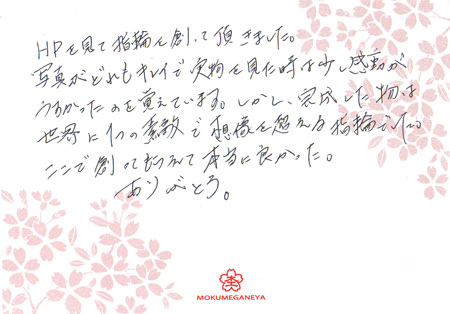 HPを見て指輪を創って頂きました。
写真がどれもキレイで実物を見た時は少し感動が
うすかったのを覚えています。しかし、完成した物は
世界に1つの素敵で想像を超える指輪でした。
ここで創ってもらえて本当に良かった。
ありがとう。
MOKUMEGANEYA